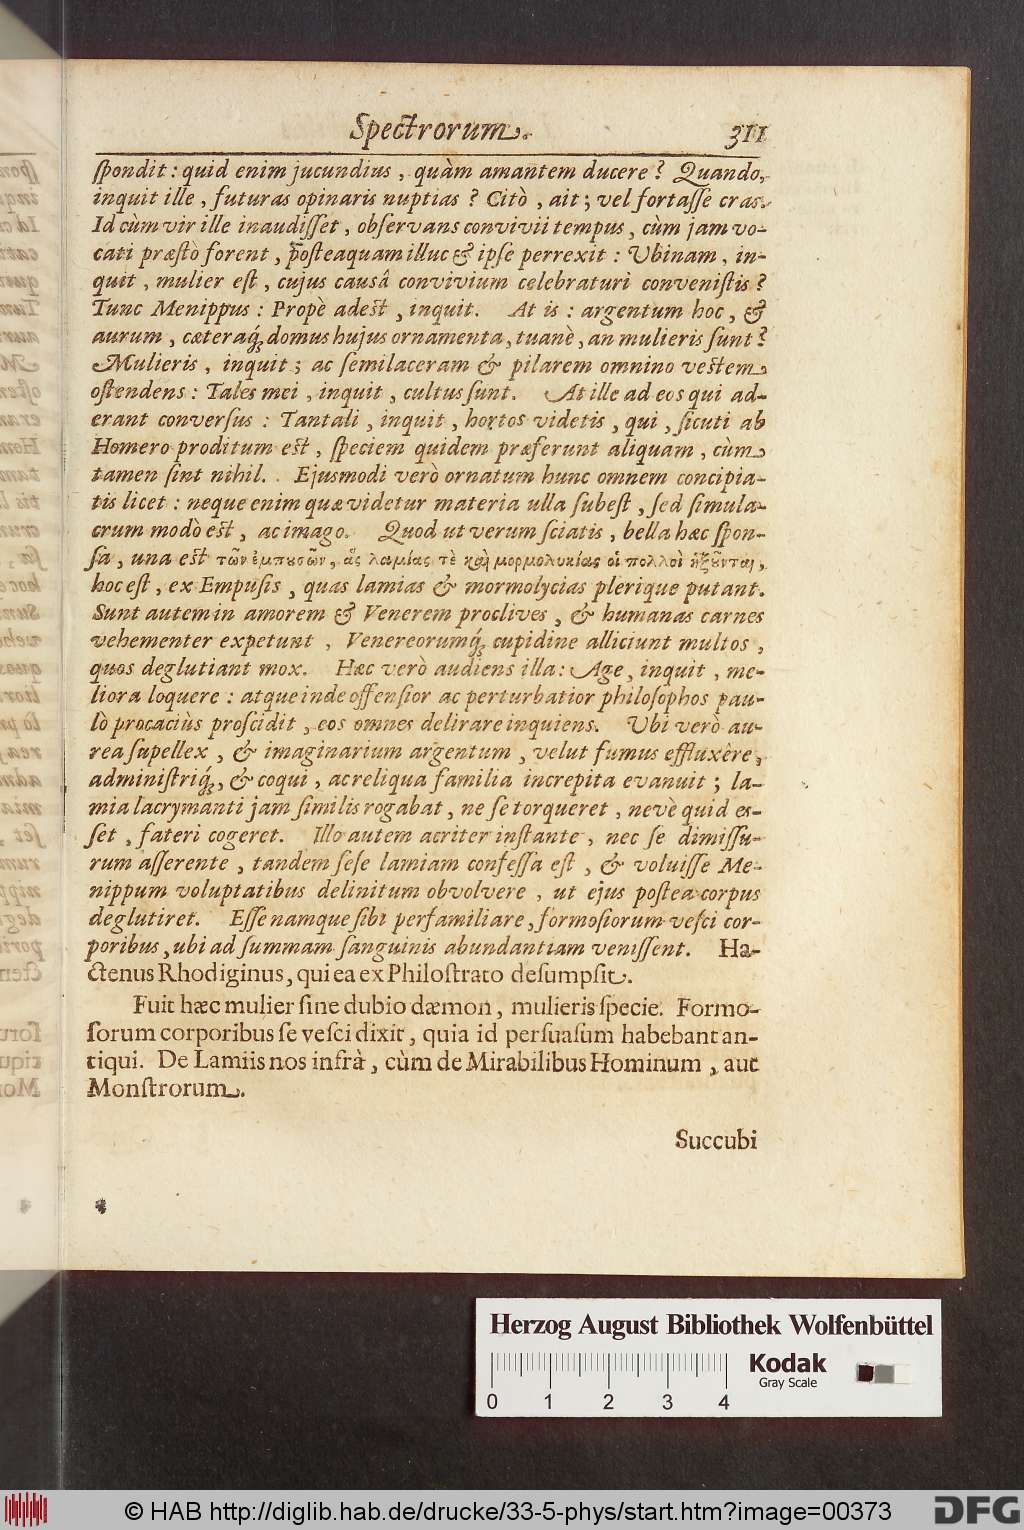 Spectrorum. 311
ſpondit: quid enim jucundius, quàm amantem ducere? Quando,
inquit ille, futuras opinaris nuptias? Citò, ait; vel fortaſſe cras.
Id cùm vir ille inaudiſſet, obſervans convivii tempus, cùm jam vo-
cati præſtò forent, poſteaquam illuc & ipſe perrexit: Ubinam, in-
quit, mulier eſt, cujus causâ convivium celebraturi conveniſtis?
Tunc Menippus: Propè adest, inquit. At is: argentum hoc, &
aurum, cæteraq́; domus hujus ornamenta, tuanè, an mulieris ſunt?
Mulieris, inquit; ac ſemilaceram & pilarem omnino vestem
oſtendens: Tales mei, inquit, cultus ſunt. At ille ad eos qui ad-
erant converſus: Tantali, inquit, hortos videtis, qui, ſicuti ab
Homero proditum est, ſpeciem quidem præferunt aliquam, cùm
tamen ſint nihil. Ejusmodi verò ornatum hunc omnem concipia-
tis licet: neque enim quæ videtur materia ulla ſubeſt, ſed ſimula-
crum modò est, ac imago. Quod ut verum ſciatis, bella hæc ſpon-
ſa, una est τῶν ἐμπουσῶν, ἃς λαμίας τὲ καὶ μορμολυκίας οἱ πολλοὶ ἡγοῦνται,
hoc eſt, ex Empuſis, quas lamias & mormolycias plerique putant.
Sunt autem in amorem & Venerem proclives, & humanas carnes
vehementer expetunt, Venereorumq́; cupidine alliciunt multos,
quos deglutiant mox. Hæc verò audiens illa: Age, inquit, me-
liora loquere: atque inde offenſior ac perturbatior philoſophos pau-
lò procaciùs proſcidit, eos omnes delirare inquiens. Ubi verò au-
rea ſupellex, & imaginarium argentum, velut fumus effluxêre,
adminiſtriq́;, & coqui, ac reliqua familia increpita evanuit; la-
mia lacrymanti jam ſimilis rogabat, ne ſe torqueret, nevè quid es-
ſet, fateri cogeret. Illo autem acriter inſtante, nec ſe dimiſſu-
rum aſſerente, tandem ſeſe lamiam confeſſa eſt, & voluiſſe Me-
nippum voluptatibus delinitum obvolvere, ut ejus poſtea corpus
deglutiret. Eſſe namque ſibi perfamiliare, formoſiorum veſci cor-
poribus, ubi ad ſummam ſanguinis abundantiam veniſſent. Ha-
ctenus Rhodiginus, qui ea ex Philoſtrato deſumpſit.
Fuit hæc mulier ſine dubio dæmon, mulieris ſpecie. Formo-
ſorum corporibus ſe veſci dixit, quia id perſuaſum habebant an-
tiqui. De Lamiis nos infrà, cùm de Mirabilibus Hominum, aut
Monſtrorum.
Succubi
*
Herzog August Bibliothek Wolfenbüttel
Kodak
Gray Scale
0 1 2 3 4
© HAB http://diglib.hab.de/drucke/33-5-phys/start.htm?image=00373
DFG